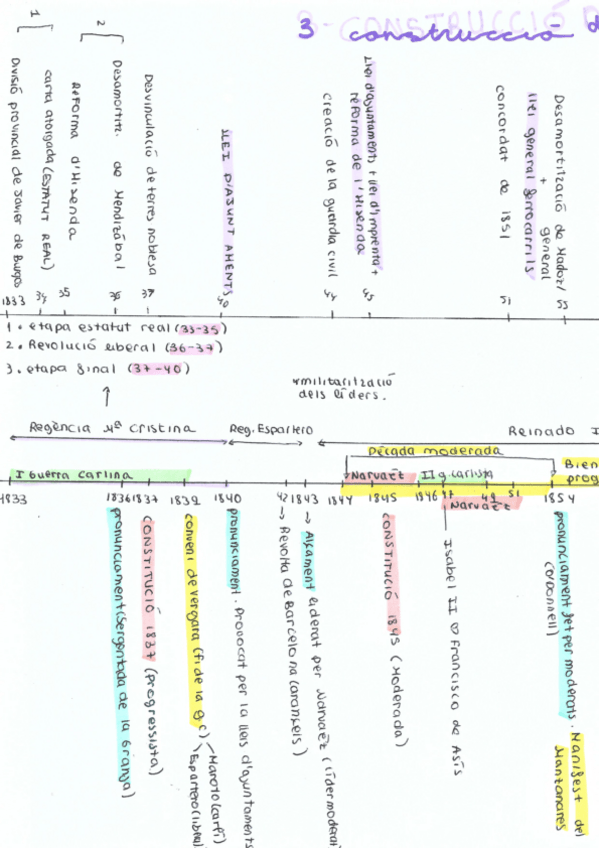 3 construcció d
1
2
Divisió provincial de Javier de Burgos
carta atorgada (ESTATUT REAL)
Reforma d'Hisenda
Desamortitz. de Mendizábal
Desvinculació de terres noblesa
LLEI D'AJUNTAMENTS
creació de la guardia civil
Llei d'ajuntaments + llei d'imprenta +
reforma de l'Hisenda
concordat de 1851
Llei general ferrocarrils
+
Desamortització de Madoz/
general
1833 34 35 36 37 40 44 45 51 55
1. etapa estatut real (33-35)
2. Revolució liberal (36-37)
3. etapa final (37-40)
militarització
dels líders.
Regència Mª Cristina
Reg. Espartero
Reinado I
Década moderada
I Guerra carlina
Narvaez
II g. carlista
Bien
prog
1833 1836 1837 1839 1840 42 1843 1844 1845 1846 47 49 51 1854
Narvaez
pronunciament (Sergentada de la Granja)
CONSTITUCIÓ 1837 (progressista)
conveni de vergara (fi de la g c)
Maroto (carlí)
Espartero (liberal)
pronunciament. Provocat per la lleis d'ajuntaments
→ Revolta de Barcelona (aranzels)
→ Alçament liderat per Narvaez (líder moderat
CONSTITUCIÓ 1845 (Moderada)
Isabel II ♡ Francisco de Asís
pronunciament fet per moderats. Manifest del
(O'Donnell)
Manzanares